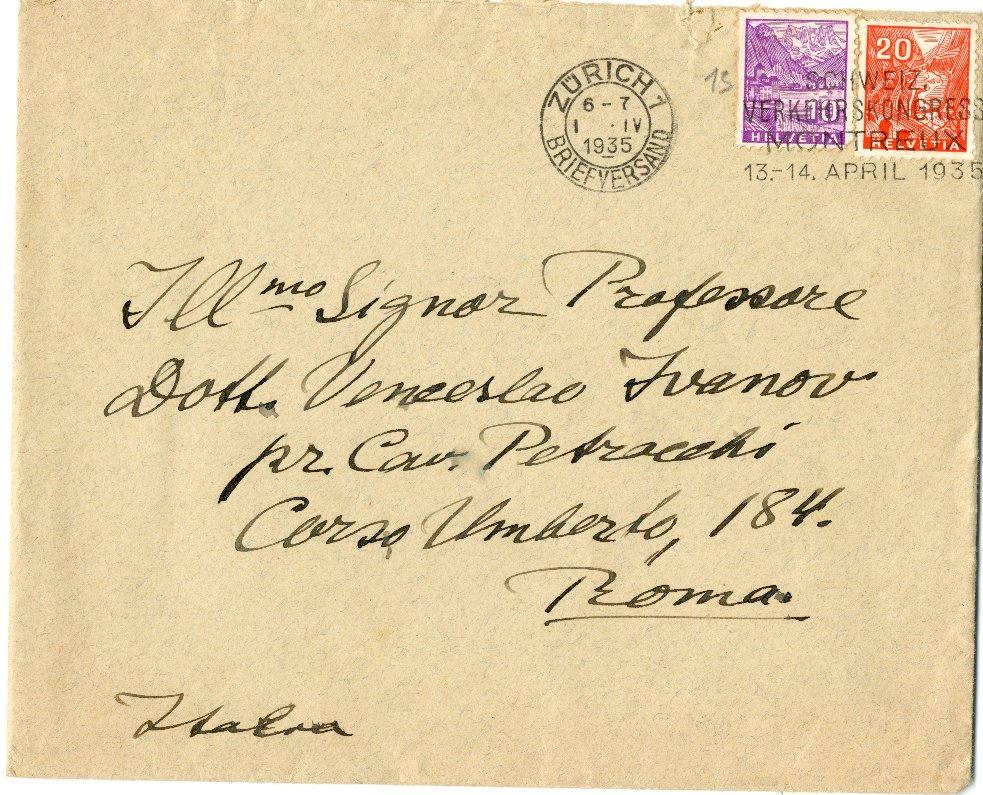 ZÜRICH 1
6-7
1. IV
1935
BRIEFVERSAND
15
10
HELVETIA
20
HELVETIA
SCHWEIZ.
VERKEHRSKONGRESS
MONTREUX
13.-14. APRIL 1935
Ill.mo Signor Professore
Dott. Venceslao Ivanov
pr. Cav. Petrocchi
Corso Umberto, 184.
Roma.
Italia